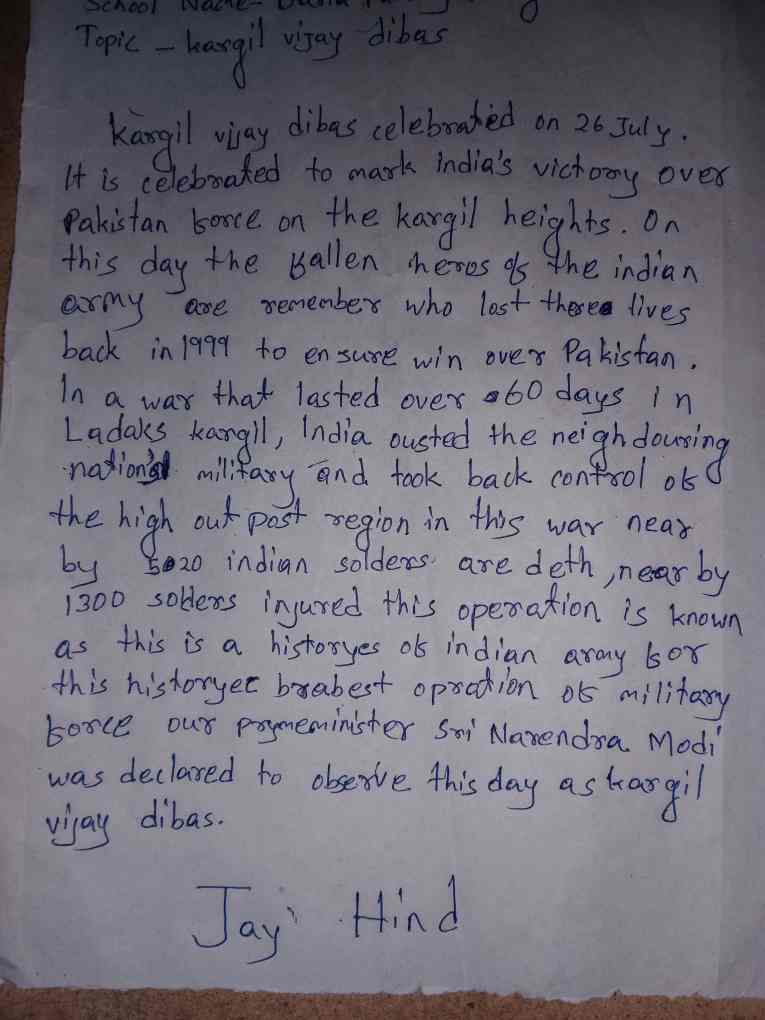 School Name-
Topic - kargil vijay dibas
kargil vijay dibas celebrated on 26 July.
It is celebrated to mark india's victory over
Pakistan force on the kargil heights. On
this day the fallen heros of the indian
army are remember who lost there lives
back in 1999 to ensure win over Pakistan.
In a war that lasted over 60 days in
Ladaks kargil, India ousted the neighdouring
national military and took back control of
the high out post region in this war near
by 5020 indian solders are deth, near by
1300 solders injured this operation is known
as this is a historyes of indian army for
this historyec brabest opration of military
force our prymeminister Sri Narendra Modi
was declared to observe this day as kargil
vijay dibas.
Jay Hind